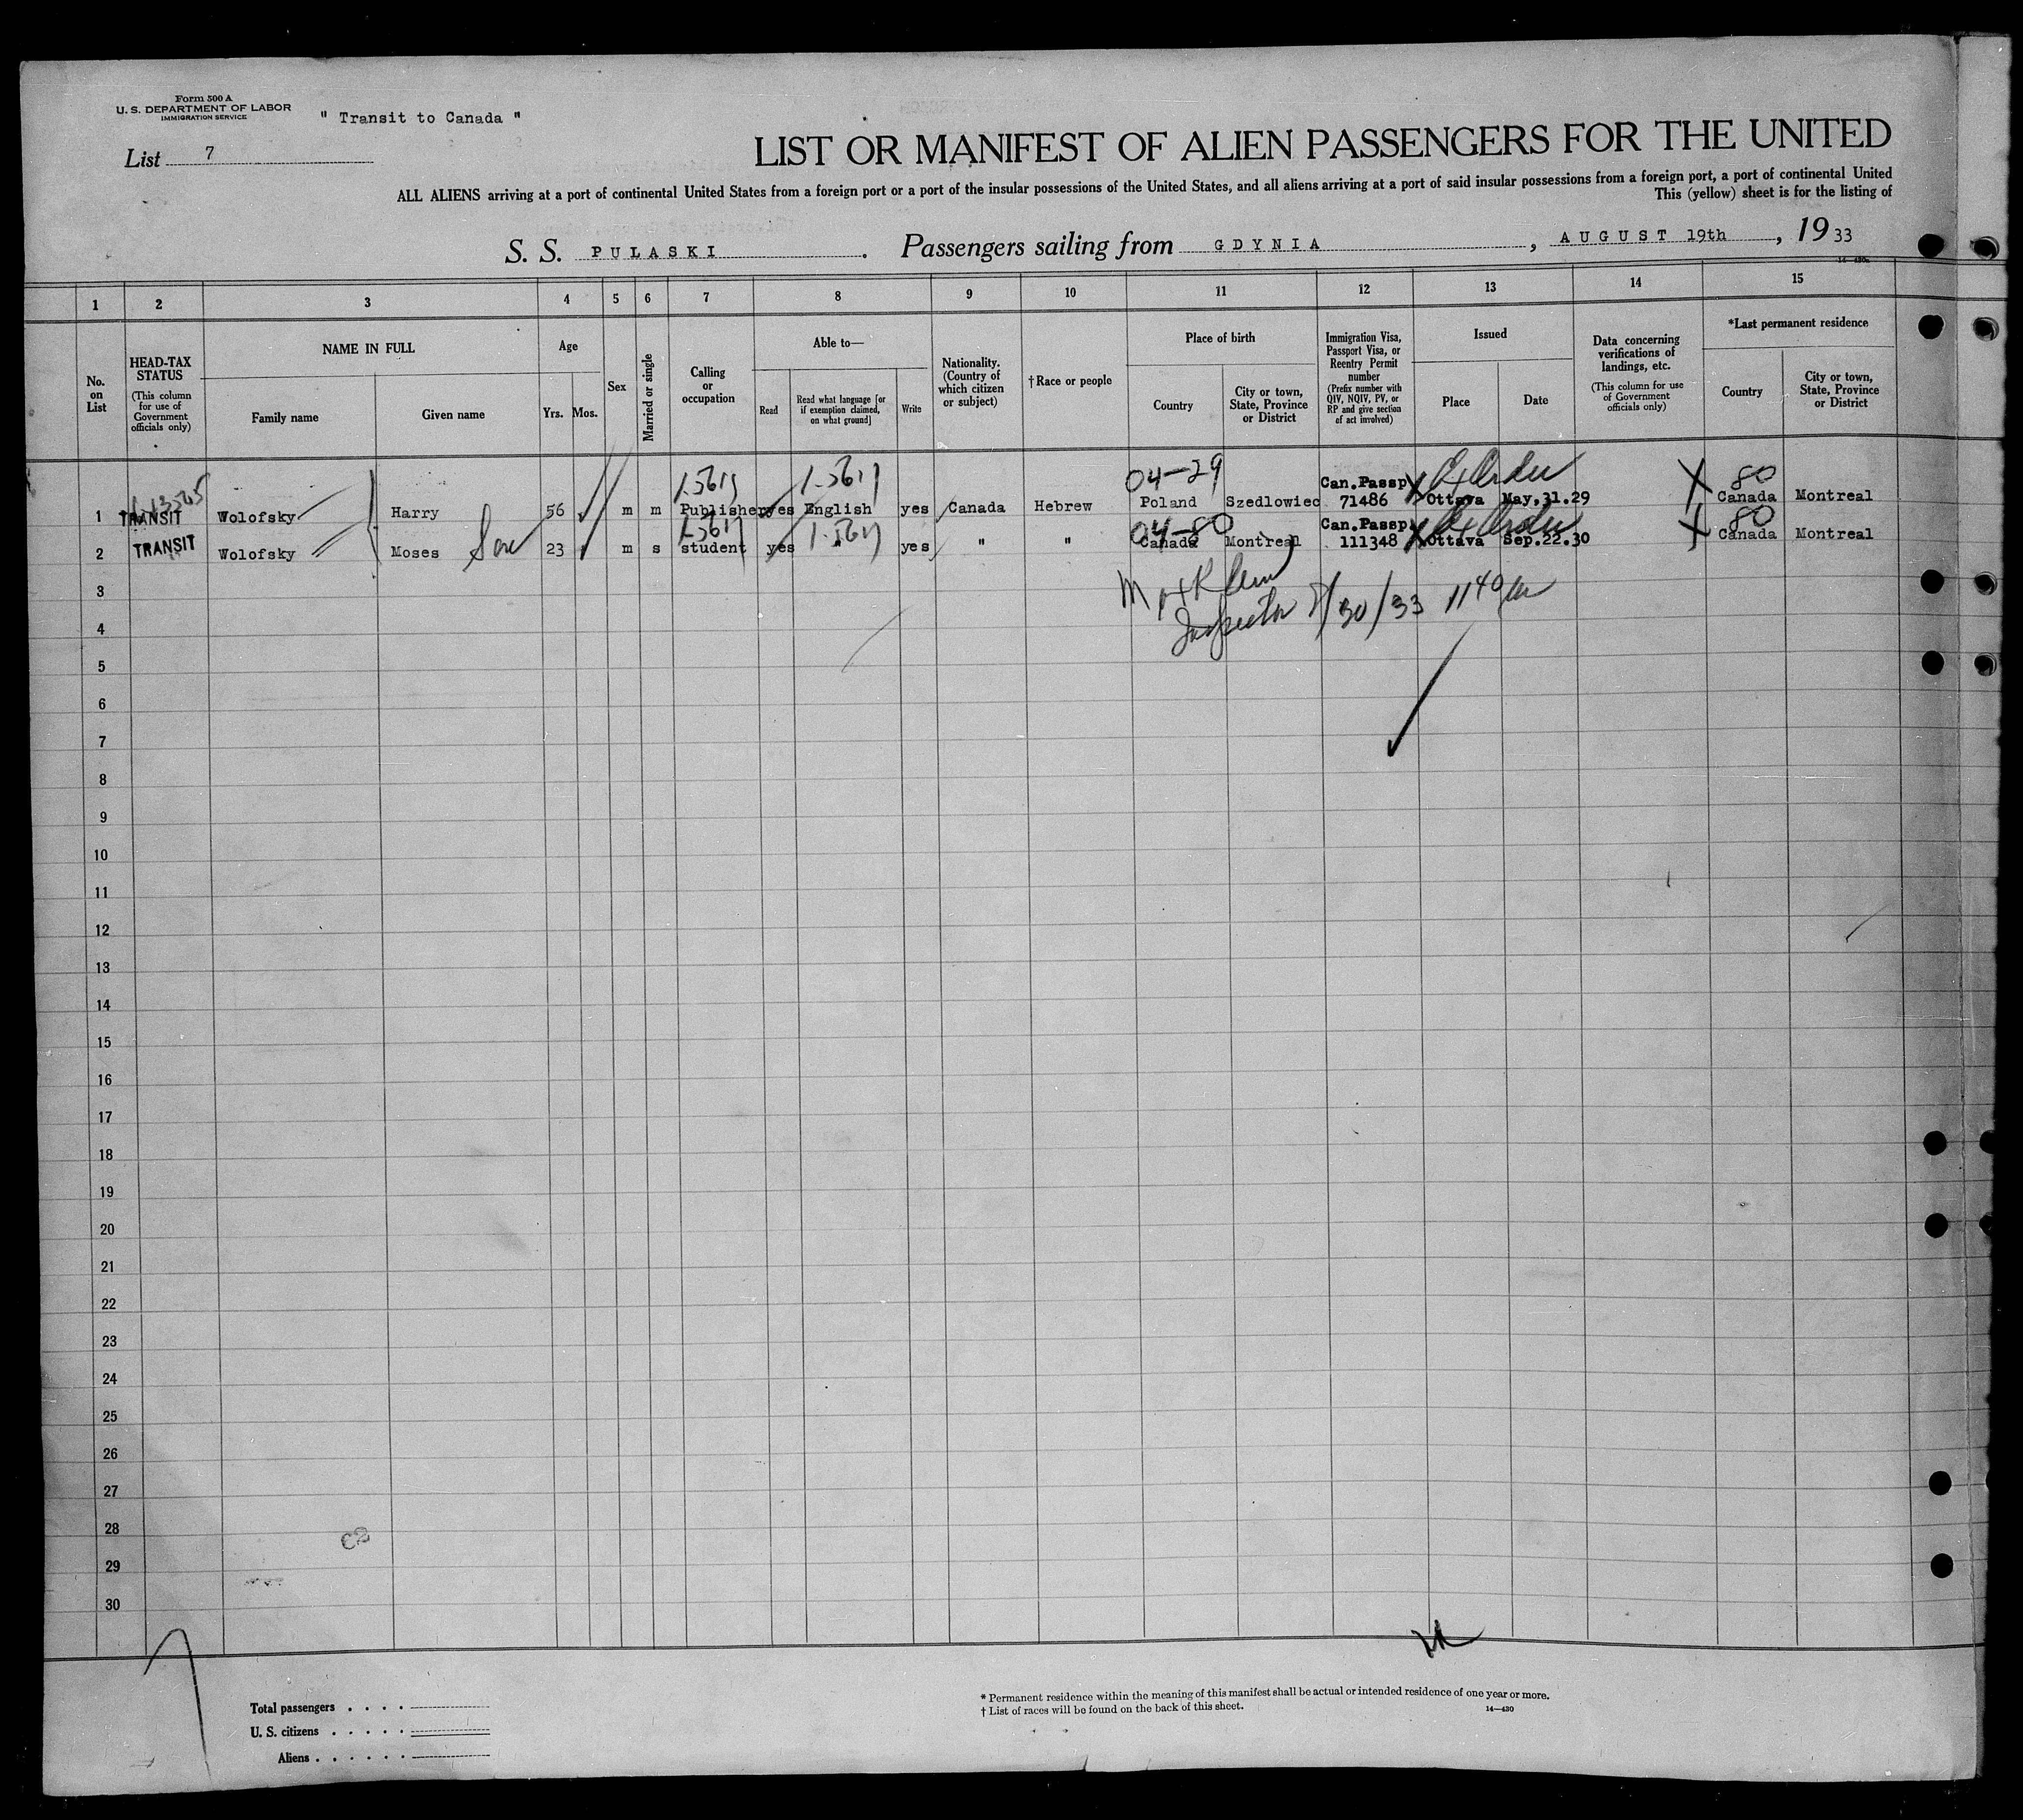 Form 500 A
U. S. DEPARTMENT OF LABOR
IMMIGRATION SERVICE
" Transit to Canada "
List 7
LIST OR MANIFEST OF ALIEN PASSENGERS FOR THE UNITED
ALL ALIENS arriving at a port of continental United States from a foreign port or a port of the insular possessions of the United States, and all aliens arriving at a port of said insular possessions from a foreign port, a port of continental United
This (yellow) sheet is for the listing of
S. S. PULASKI. Passengers sailing from GDYNIA, AUGUST 19th, 1933
1 2 3 4 5 6 7 8 9 10 11 12 13 14 15
No. on List
HEAD-TAX STATUS
(This column for use of Government officials only)
NAME IN FULL
Family name
Given name
Age
Yrs.
Mos.
Sex
Married or single
Calling or occupation
Able to—
Read
Read what language [or if exemption claimed, on what ground]
Write
Nationality. (Country of which citizen or subject)
†Race or people
Place of birth
Country
City or town, State, Province or District
Immigration Visa, Passport Visa, or Reentry Permit number
(Prefix number with QIV, NQIV, PV, or RP and give section of act involved)
Issued
Place
Date
Data concerning verifications of landings, etc.
(This column for use of Government officials only)
*Last permanent residence
Country
City or town, State, Province or District
04-29 Can.Passp. 80
1 TRANSIT Wolofsky Harry 56 m m Publisher yes English yes Canada Hebrew Poland Szedlowiec 71486 Ottawa May,31.29 Canada Montreal
04-80 Can.Passp. 80
2 TRANSIT Wolofsky Moses Son 23 m s student yes " yes " " Canada Montreal 111348 Ottawa Sep.22.30 Canada Montreal
3
Inspector 8/30/33
4
5
6
7
8
9
10
11
12
13
14
15
16
17
18
19
20
21
22
23
24
25
26
27
28
29
30
Total passengers . . . .
U. S. citizens . . . . .
Aliens . . . . . .
* Permanent residence within the meaning of this manifest shall be actual or intended residence of one year or more.
† List of races will be found on the back of this sheet.
14—430